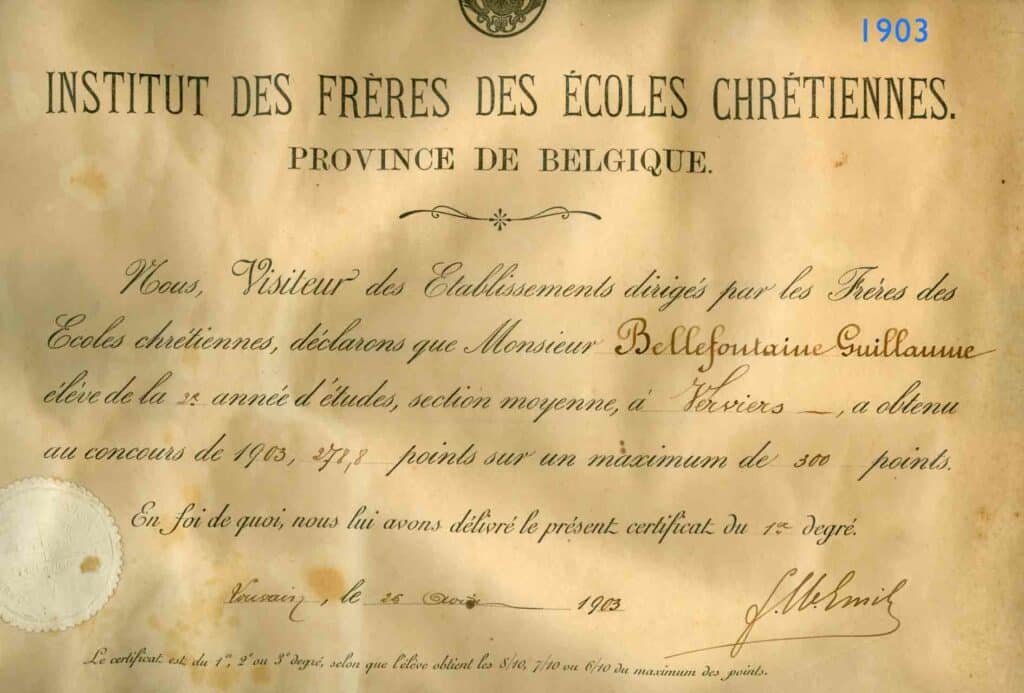 1903
INSTITUT DES FRÈRES DES ÉCOLES CHRÉTIENNES.
PROVINCE DE BELGIQUE.
Nous, Visiteur des Etablissements dirigés par les Frères des
Ecoles chrétiennes, déclarons que Monsieur Bellefontaine Guillaume
élève de la 2e année d'études, section moyenne, à Verviers —, a obtenu
au concours de 1903, 278,8 points sur un maximum de 300 points.
En foi de quoi, nous lui avons délivré le présent certificat du 1er degré.
, le 26 1903
Le certificat est du 1er, 2e ou 3e degré, selon que l'élève obtient les 8/10, 7/10 ou 6/10 du maximum des points.